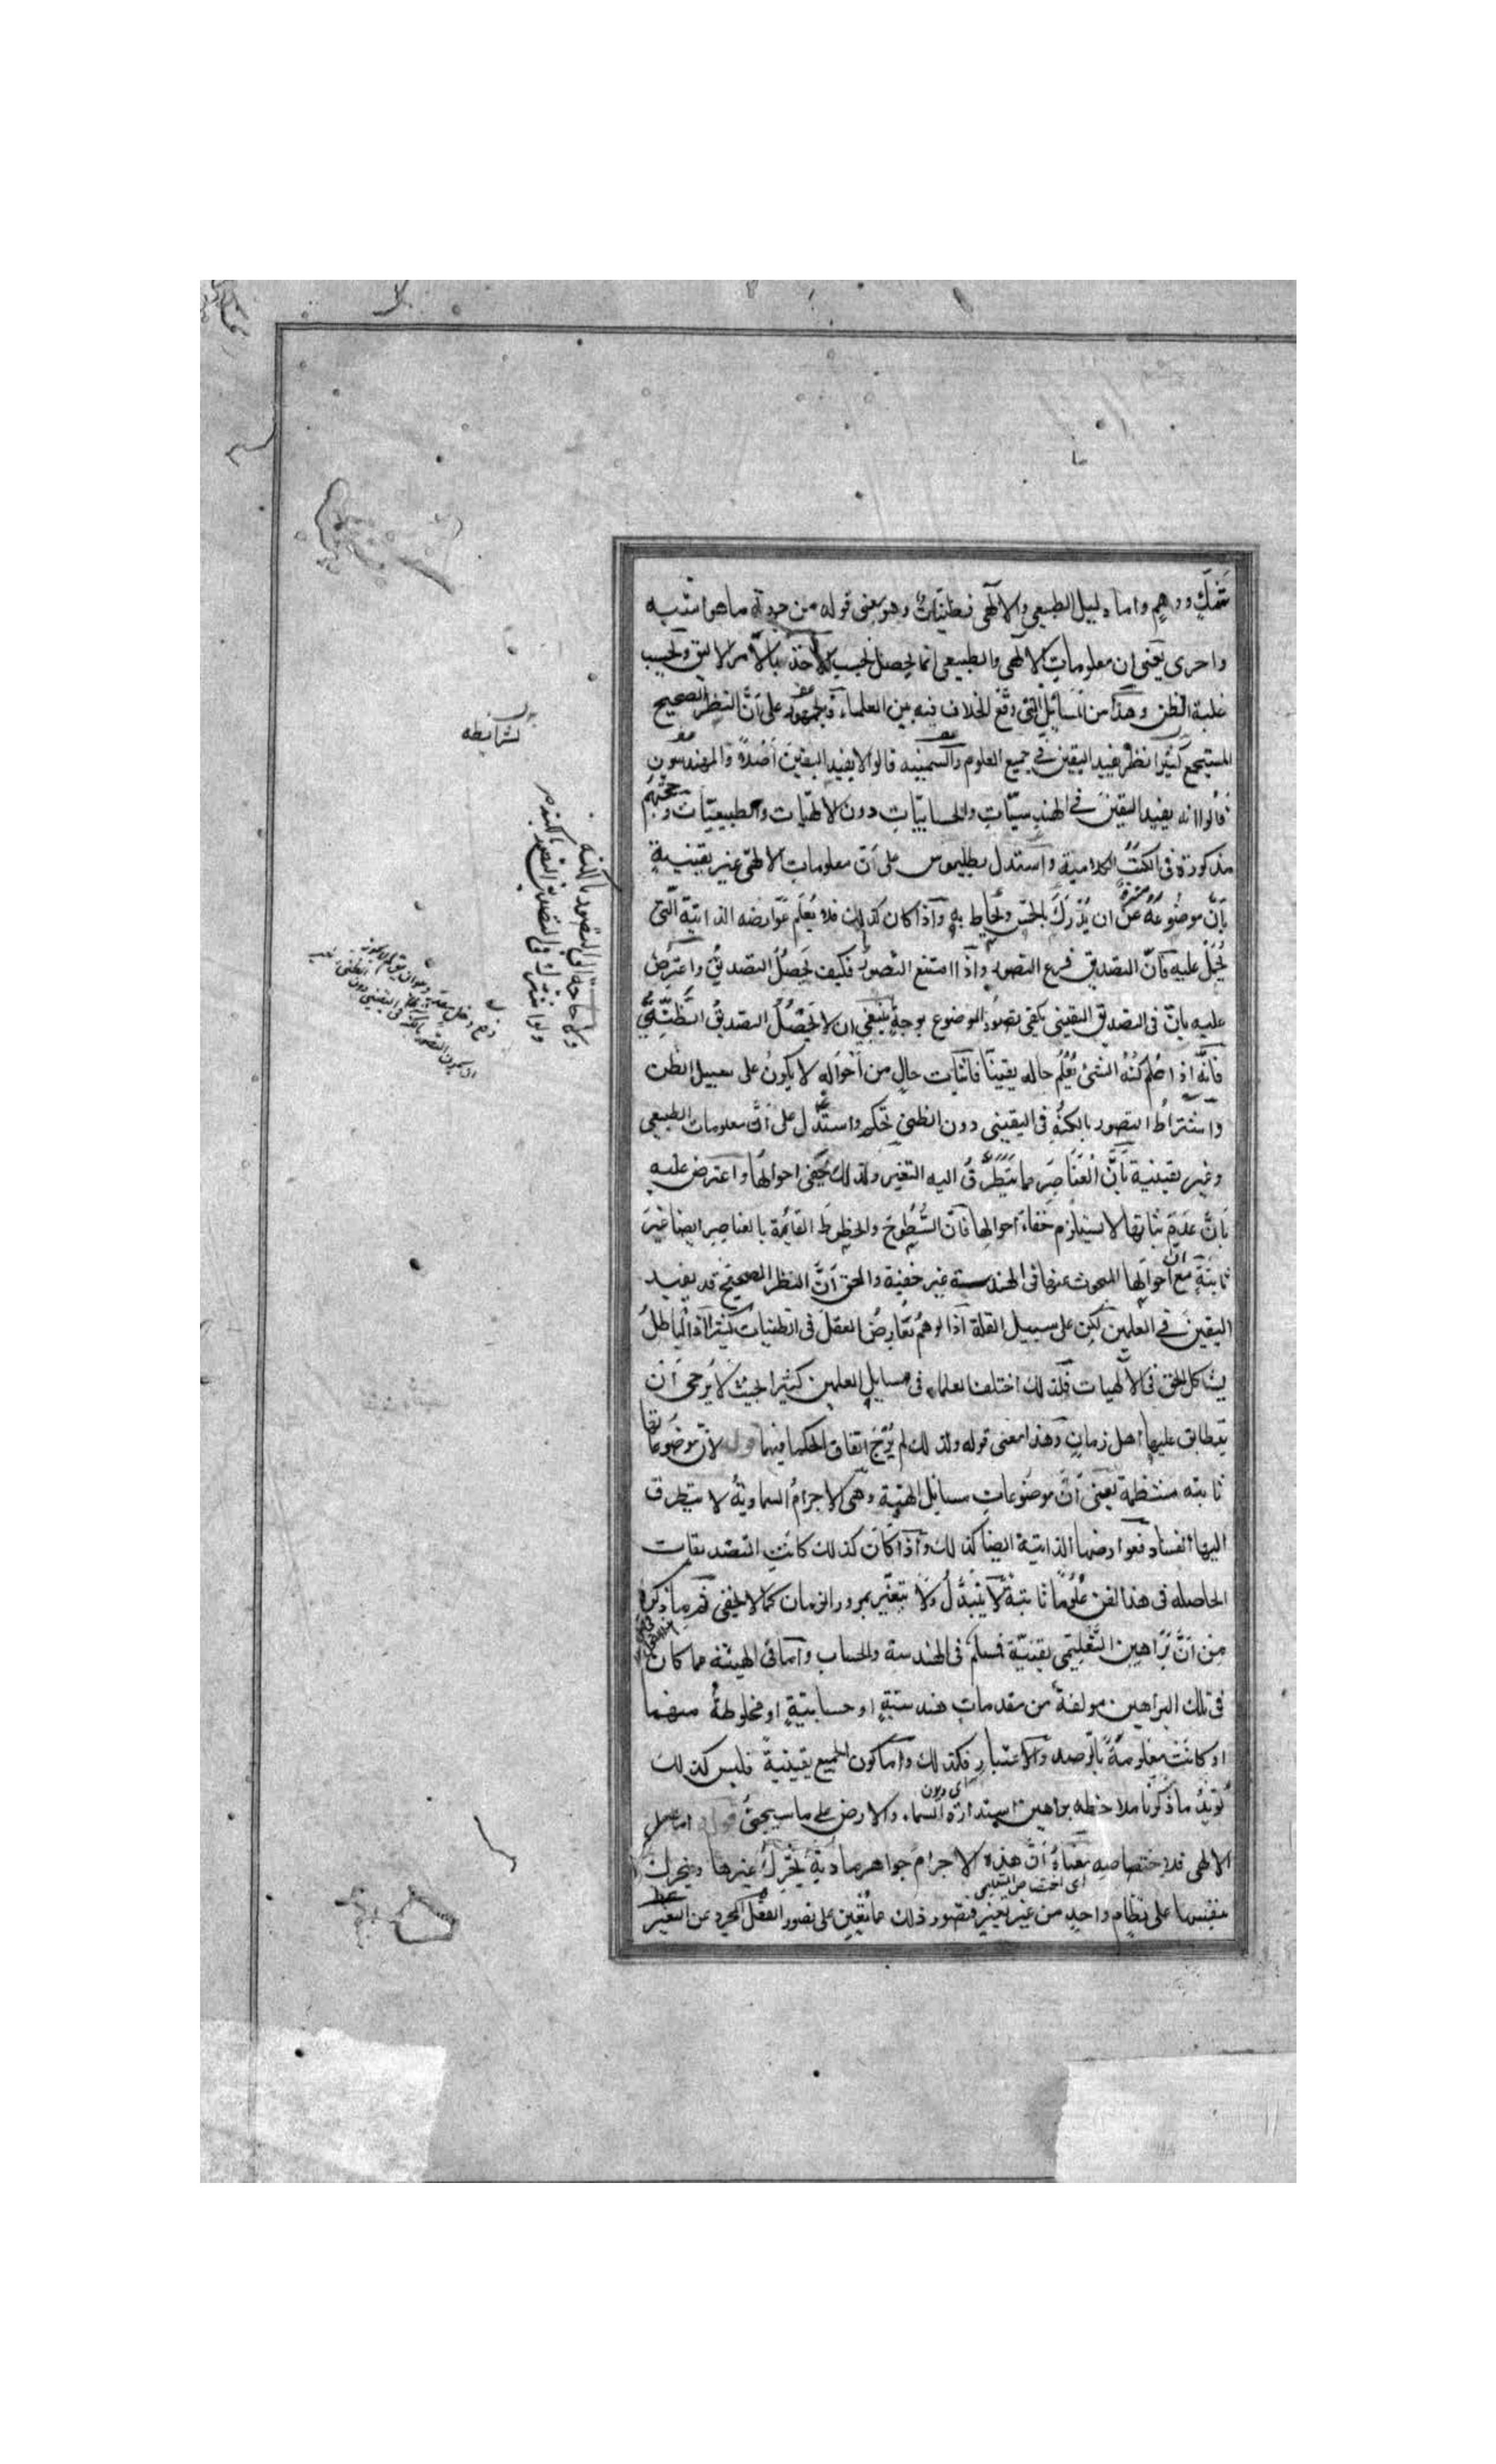 شك ووهم واما دليل الطبيعي والالهى فظنيات وهو معنى قوله من جهة ما هو اشبه
واحرى يعنى ان معلومات الالهى والطبيعى انما يحصل بحسب الاخذ بالامر الاليق وبحسب
غلبة الظن وهذا من المسائل التى وقع الخلاف فيه بين العلماء فالجمهور على ان النظر الصحيح
المستجمع يفيد اليقين فى جميع العلوم والسمنية قالوا لا يفيد اليقين اصلا والمهندسون
قالوا انه يفيد اليقين فى الهندسيات والحسابيات دون الالهيات والطبيعيات وحججهم
مذكورة فى الكتب الكلامية واستدل بطليموس على ان معلومات الالهى غير يقينية
بان موضوعه منزه عن ان يدرك بالحس ويحاط به واذا كان كذلك فلا يعلم عوارضه الذاتية التى
يحمل عليه فان التصديق فرع التصور واذا امتنع التصور فكيف يحصل التصديق واعترض
عليه بان فى التصديق اليقينى يكفى تصور الموضوع بوجه ينبغى ان لا يحصل التصديق الظنى
فانه اذا علم كنه الشئ يعلم حاله يقينا فاثبات حال من احواله لا يكون على سبيل الظن
واشتراط التصور بالكنه فى اليقينى دون الظنى تحكم واستدل على ان معلومات الطبيعى
غير يقينية بان العناصر مما يتطرق اليه التغير ولذلك يخفى احوالها واعترض عليه
بان عدم ثباتها لا يستلزم خفاء احوالها فان السطوح والخطوط القائمة بالعناصر ايضا غير
ثابتة مع ان احوالها المبحوث عنها فى الهندسة غير خفية والحق ان النظر الصحيح قد يفيد
اليقين فى العلمين لكن على سبيل القلة اذ الوهم يعارض العقل فى الطبيعيات كثيرا اذ الباطل
يشاكل الحق فى الالهيات فلذلك اختلف العلماء فى مسايل العلمين كثيرا بحيث لا يرجى ان
يتطابق عليها اهل زمان وهذا معنى قوله ولذلك لم يرج اتفاق الحكماء فيهما قوله لان موضوعاتها
ثابته منتظمة يعنى ان موضوعات مسايل الهيئة وهى الاجرام السماوية لا يتطرق
اليها الفساد فعوارضها الذاتية ايضا كذلك واذا كان كذلك كانت التصديقات
الحاصله فى هذا الفن علوما ثابتة لا يتبدل ولا يتغير بمرور الزمان كما لا يخفى ثم ما ذكره
من ان براهين التعليمى يقينية فمسلم فى الهندسة والحساب واما فى الهيئة فما كان
فى تلك البراهين مولفة من مقدمات هندسية او حسابية او مخلوطة منهما
او كانت معلومة بالرصد والاعتبار فكذلك واما كون الجميع يقينية فليس كذلك
يؤيد ما ذكرنا ملاحظه براهين استدارة السماء والارض على ما سيجئ قوله اما على
الالهى فلاختصاصه معناه ان هذه الاجرام جواهر مادية يحرك غيرها ويتحرك
اى اختصاص التعليمى
بنفسها على نظام واحد من غير تغير فتصور ذلك مما يعين على تصور العقل المجرد عن التغير
بشرائطه